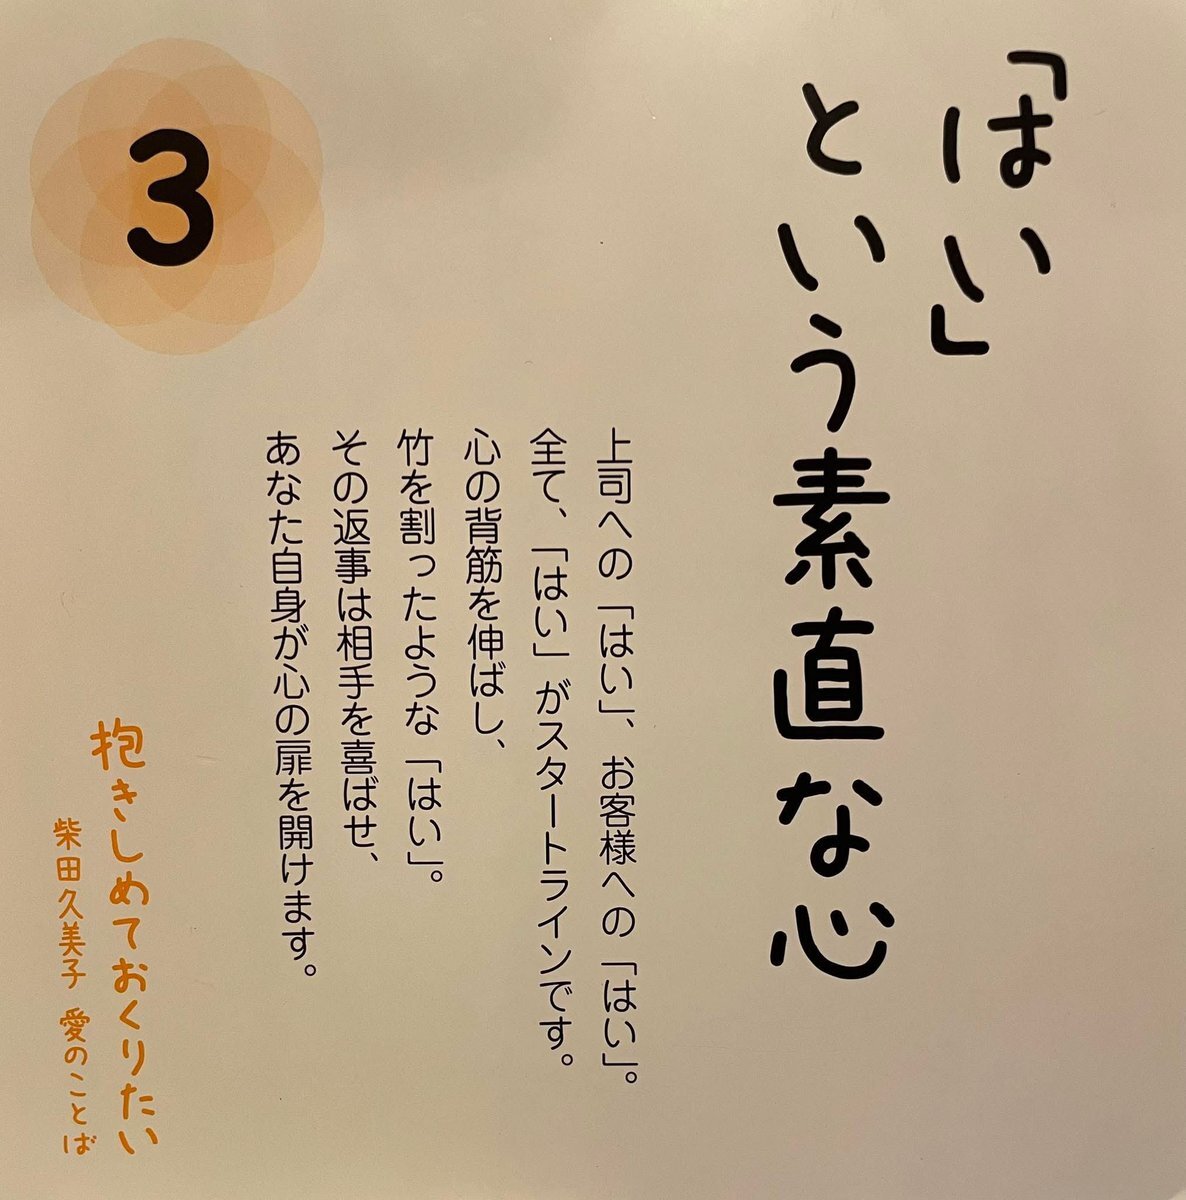 「はい」
という素直な心
上司への「はい」、お客様への「はい」。
全て、「はい」がスタートラインです。
心の背筋を伸ばし、
竹を割ったような「はい」。
その返事は相手を喜ばせ、
あなた自身が心の扉を開けます。
3
抱きしめておくりたい
柴田久美子 愛のことば